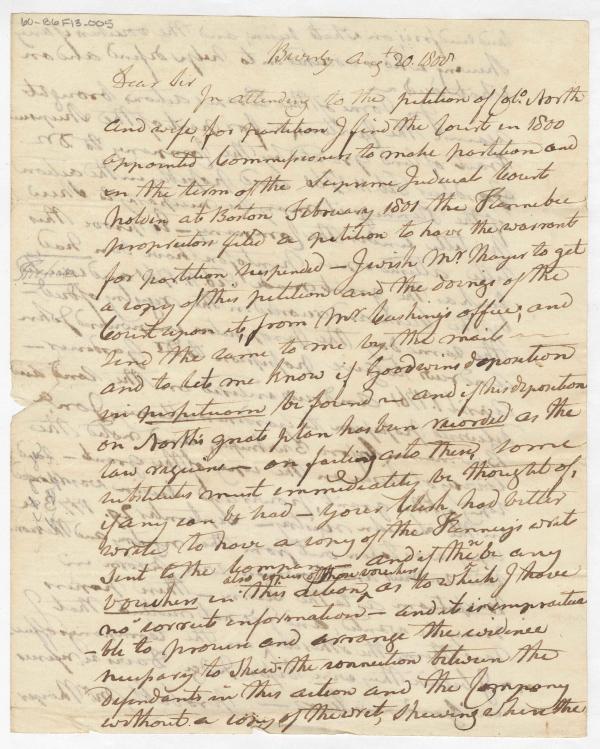 60-B6F13.005
Beverly Augt 20. 1808
Dear Sir
In attending to the petition of Colo. North
and wife, for partition I find the Court in 1800
appointed Commissioners to make partition and
in the term of the Supreme Judicial Court
holden at Boston February 1801 the Kennebec
proprietors filed a petition to have the warrant
for partition suspended – I wish Mr Thayer to get
a copy of this petition and the doings of the
Court upon it, from Mr Cushing's office, and
send the same to me by the mail –
and to let me know if Goodwins deposition
in perpetuam be found – and if his deposition
on North's great plan has been recorded as the
law requires – on failing as to these, some
substitutes must immediately be thought of,
if any can be had – your Clerk had better
write to have a copy of the writ
sent to the Company – and if there be any
also copies of those vouchers
vouchers in this action, as to which I have
no correct information – and it is impractica
-ble to procure and arrange the evidince
necessary to shew the connection between the
defendants in this action and the Company
without a copy of the writ, shewing where the